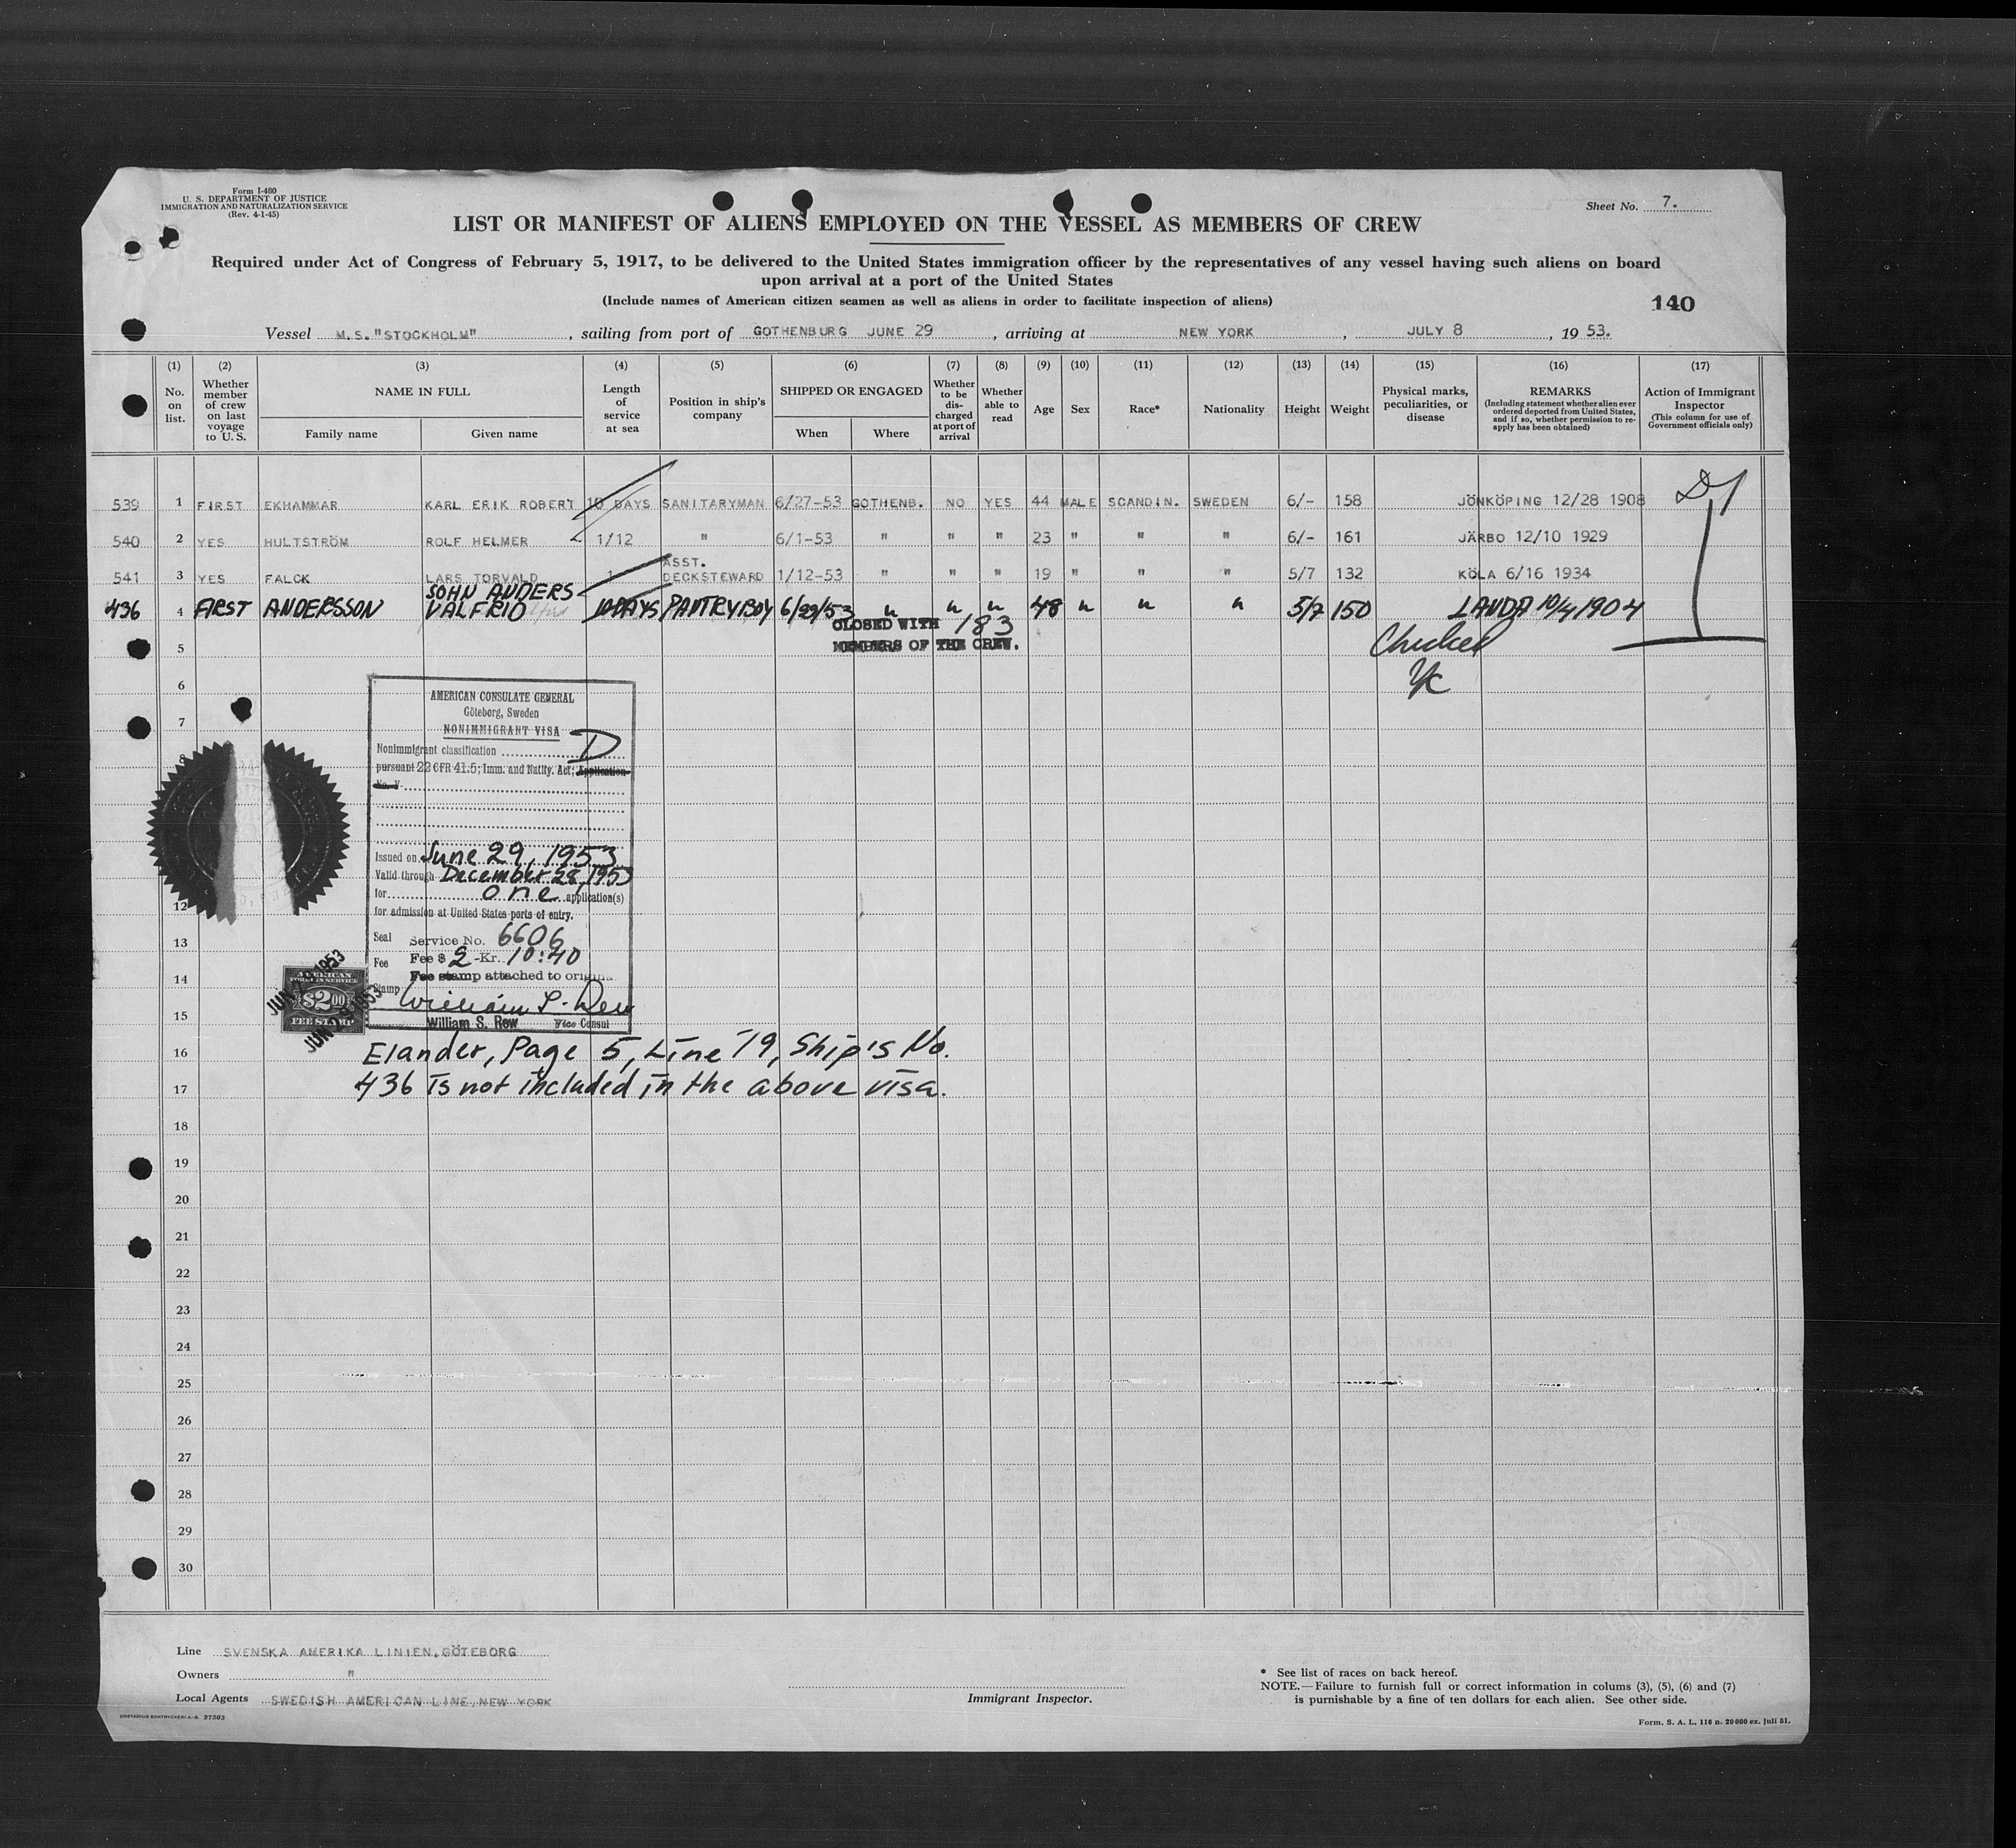 Form I-480
U. S. DEPARTMENT OF JUSTICE
IMMIGRATION AND NATURALIZATION SERVICE
(Rev. 4-1-45)
Sheet No. 7.
LIST OR MANIFEST OF ALIENS EMPLOYED ON THE VESSEL AS MEMBERS OF CREW
Required under Act of Congress of February 5, 1917, to be delivered to the United States immigration officer by the representatives of any vessel having such aliens on board
upon arrival at a port of the United States
(Include names of American citizen seamen as well as aliens in order to facilitate inspection of aliens)
140
Vessel M.S."STOCKHOLM", sailing from port of GOTHENBURG JUNE 29, arriving at NEW YORK, JULY 8, 19 53.
(1) (2) (3) (4) (5) (6) (7) (8) (9) (10) (11) (12) (13) (14) (15) (16) (17)
No. on list.
Whether member of crew on last voyage to U. S.
NAME IN FULL
Family name
Given name
Length of service at sea
Position in ship's company
SHIPPED OR ENGAGED
When
Where
Whether to be discharged at port of arrival
Whether able to read
Age
Sex
Race*
Nationality
Height
Weight
Physical marks, peculiarities, or disease
REMARKS
(Including statement whether alien ever ordered deported from United States, and if so, whether permission to reapply has been obtained)
Action of Immigrant Inspector
(This column for use of Government officials only)
539 1 FIRST EKHAMMAR KARL ERIK ROBERT 10 DAYS SANITARYMAN 6/27-53 GOTHENB. NO YES 44 MALE SCANDIN. SWEDEN 6/- 158 JÖNKÖPING 12/28 1908
540 2 YES HULTSTRÖM ROLF HELMER 1/12 " 6/1-53 " " " 23 " " " 6/- 161 JÄRBO 12/10 1929
541 3 YES FALCK LARS TORVALD 1 ASST. DECKSTEWARD 1/12-53 " " " 19 " " " 5/7 132 KÖLA 6/16 1934
436 4 FIRST ANDERSSON JOHN ANDERS VALFRID 10 DAYS PANTRYBOY 6/29/53 " " " 48 " " " 5/7 150 LANDA 10/4 1904
CLOSED WITH 183
MEMBERS OF THE CREW.
Checked
5
6
7
8
12
13
14
15
16
17
18
19
20
21
22
23
24
25
26
27
28
29
30
AMERICAN CONSULATE GENERAL
Göteborg, Sweden
NONIMMIGRANT VISA
Nonimmigrant classification D
pursuant 22 CFR 41.5; Imm. and Natlty. Act; Application
No. V
Issued on June 29, 1953
Valid through December 28, 1953
for one application(s)
for admission at United States ports of entry.
Seal Service No. 6606
Fee Fee $ 2 -Kr. 10:40
Fee stamp attached to original
Stamp William S. Rew
William S. Rew Vice Consul
AMERICAN
FOREIGN SERVICE
$2.00
FEE STAMP
Elander, Page 5, Line 19, Ship's No.
436 is not included in the above visa.
Line SVENSKA AMERIKA LINIEN, GÖTEBORG
Owners "
Local Agents SWEDISH AMERICAN LINE, NEW YORK
Immigrant Inspector.
* See list of races on back hereof.
NOTE.—Failure to furnish full or correct information in colums (3), (5), (6) and (7)
is punishable by a fine of ten dollars for each alien. See other side.
Form. S. A. L. 116 n. 20 000 ex. juli 51.